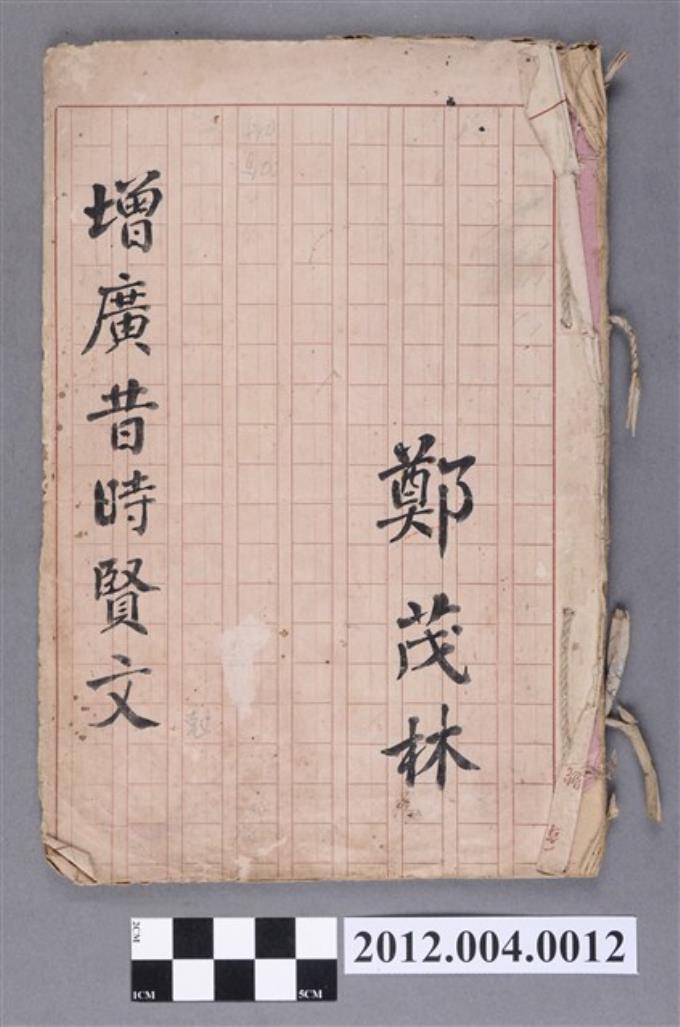 鄭茂林
增廣昔時賢文
2CM
1CM
5CM
2012.004.0012